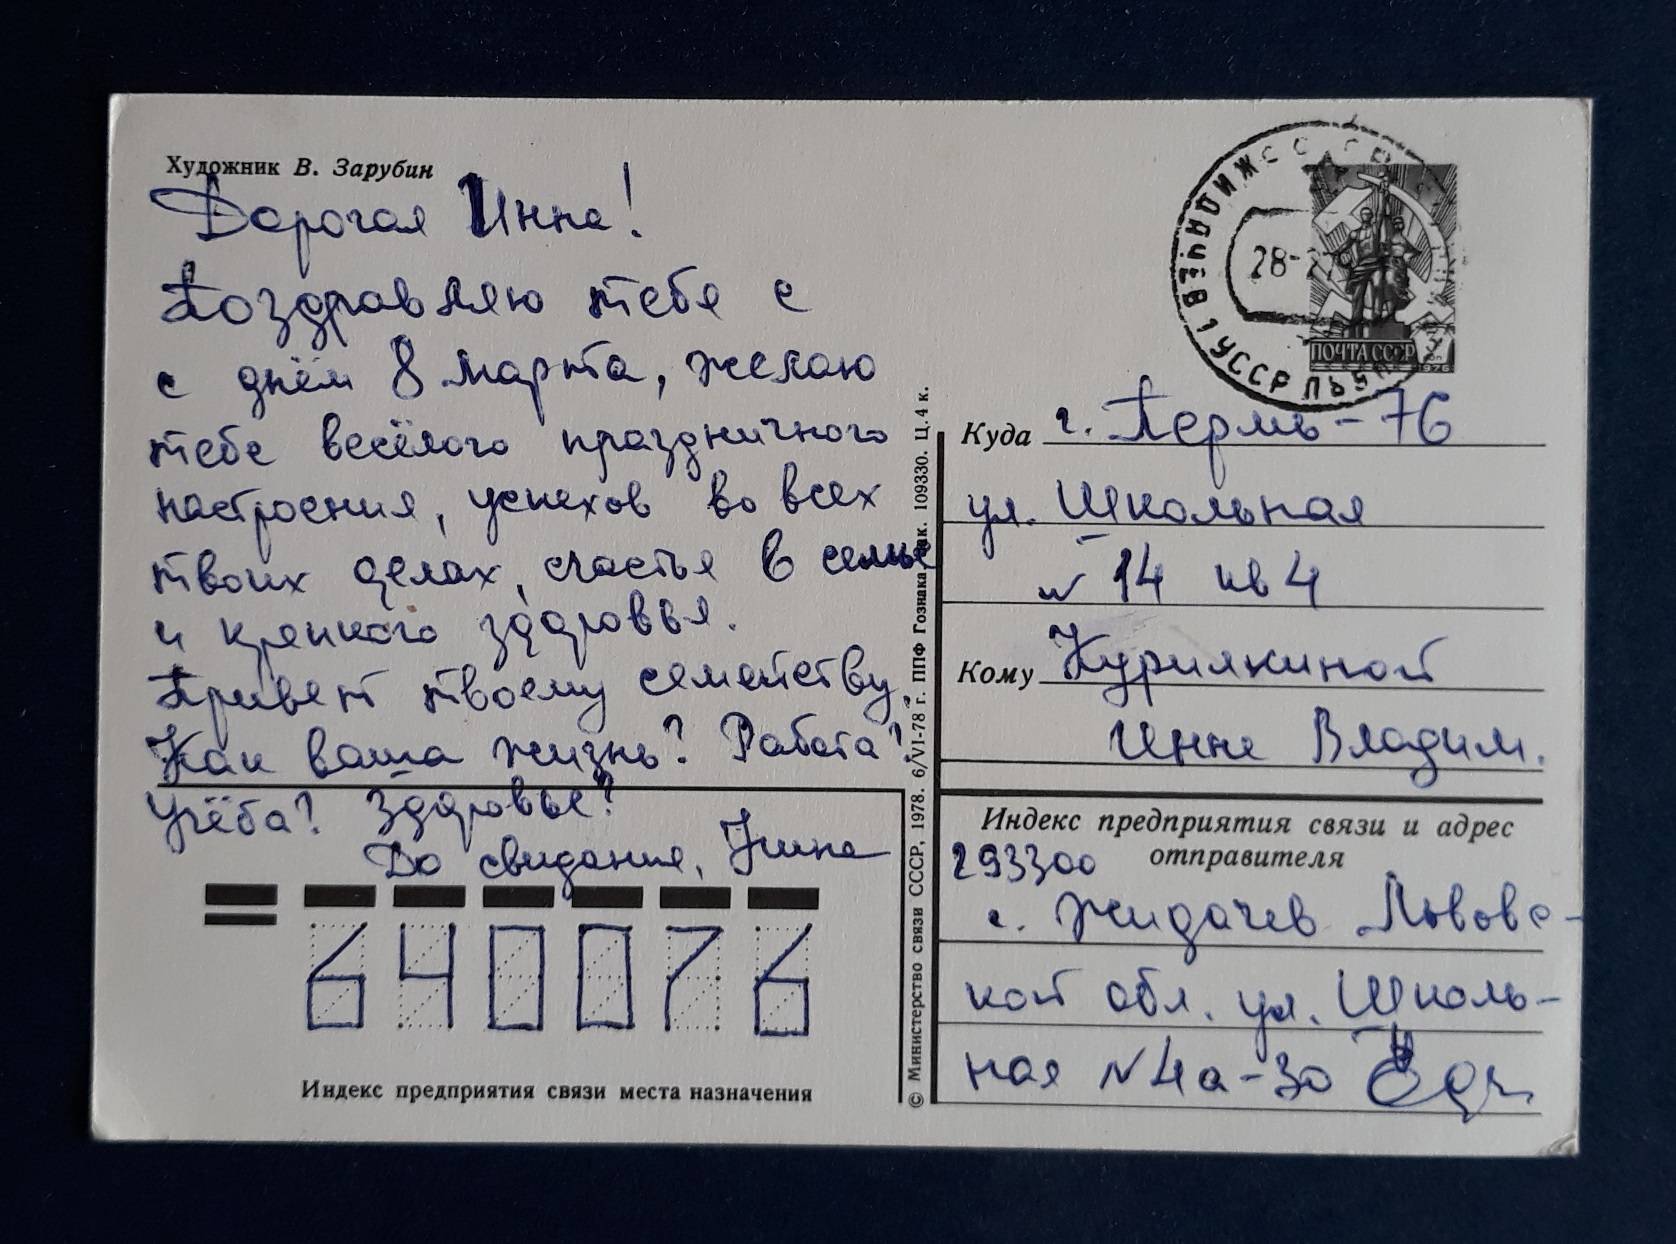 Художник В. Зарубин
Дорогая Инна!
Поздравляю тебя с
с днём 8 марта, желаю
тебе весёлого праздничного
настроения, успехов во всех
твоих делах, счастья в семье
и крепкого здоровья.
Привет твоему семейству.
Как ваша жизнь? Работа?
Учёба? Здоровье?
До свидания,
640076
Индекс предприятия связи места назначения
© Министерство связи СССР, 1978. 6/VI-78 г. ППФ Гознака. Зак. 109330. Ц. 4 к.
28-2
УССР
ПОЧТА СССР
1976
Куда г. Пермь-76
ул. Школьная
N 14 кв 4
Кому Курилкиной
Инне Владим.
Индекс предприятия связи и адрес
отправителя
293300
г. Жидачев Львовс-
кой обл. ул. Школь-
ная N 4а-30